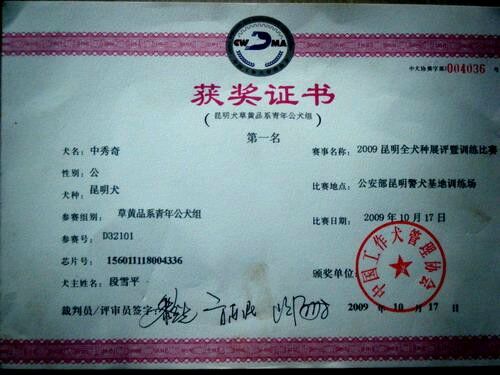 CWDMA
中犬协獒字第004036号
获奖证书
(昆明犬草黄品系青年公犬组)
第一名
犬名：中秀奇
性别：公
犬种：昆明犬
参赛组别：草黄品系青年公犬组
参赛号：D32101
芯片号：156011118004336
犬主姓名：段雪平
裁判员/评审员签字：
赛事名称：2009昆明全犬种展评暨训练比赛
比赛地点：公安部昆明警犬基地训练场
比赛日期：2009年10月17日
颁奖单位：
中国工作犬管理协会
2009年10月17日